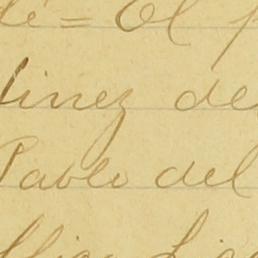 de= El p
tinez de
Pablo del